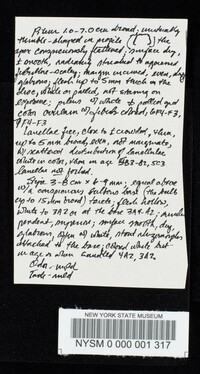 Pileus 1.0-7.0 cm broad, unusually
thimble-shaped in profile ( ) the
apex conspicuously flattened, surface dry,
± smooth, radiately streaked to appressed
fibrillose-scaly; margin incurved, even,
glabrous; flesh up to 5 mm thick in the
disc, white or pallid, not staining on
exposure; pileus white ± pallid and
color 6F4-F3,
9F4-F3
Lamellae free, close to ± crowded,
up to 5 mm broad, even, not marginate,
distribution of lamellulae
white in color, when in age 5B3-B2, 5C3
Lamellae not forked.
Stipe 3-8 cm x 6-9 mm; equal above
w/ a conspicuous bulbous base (the bulb
up to 15 mm broad) terete; flesh hollow,
white to 3A2 or at the base 3A4-A2; annulus
pendant, surface smooth, dry,
glabrous, white,
attached to the base; white but
in age or when handled 4A2, 3A2
Odor - mild
Taste - mild
NEW YORK STATE MUSEUM
NYSM 0 000 001 317